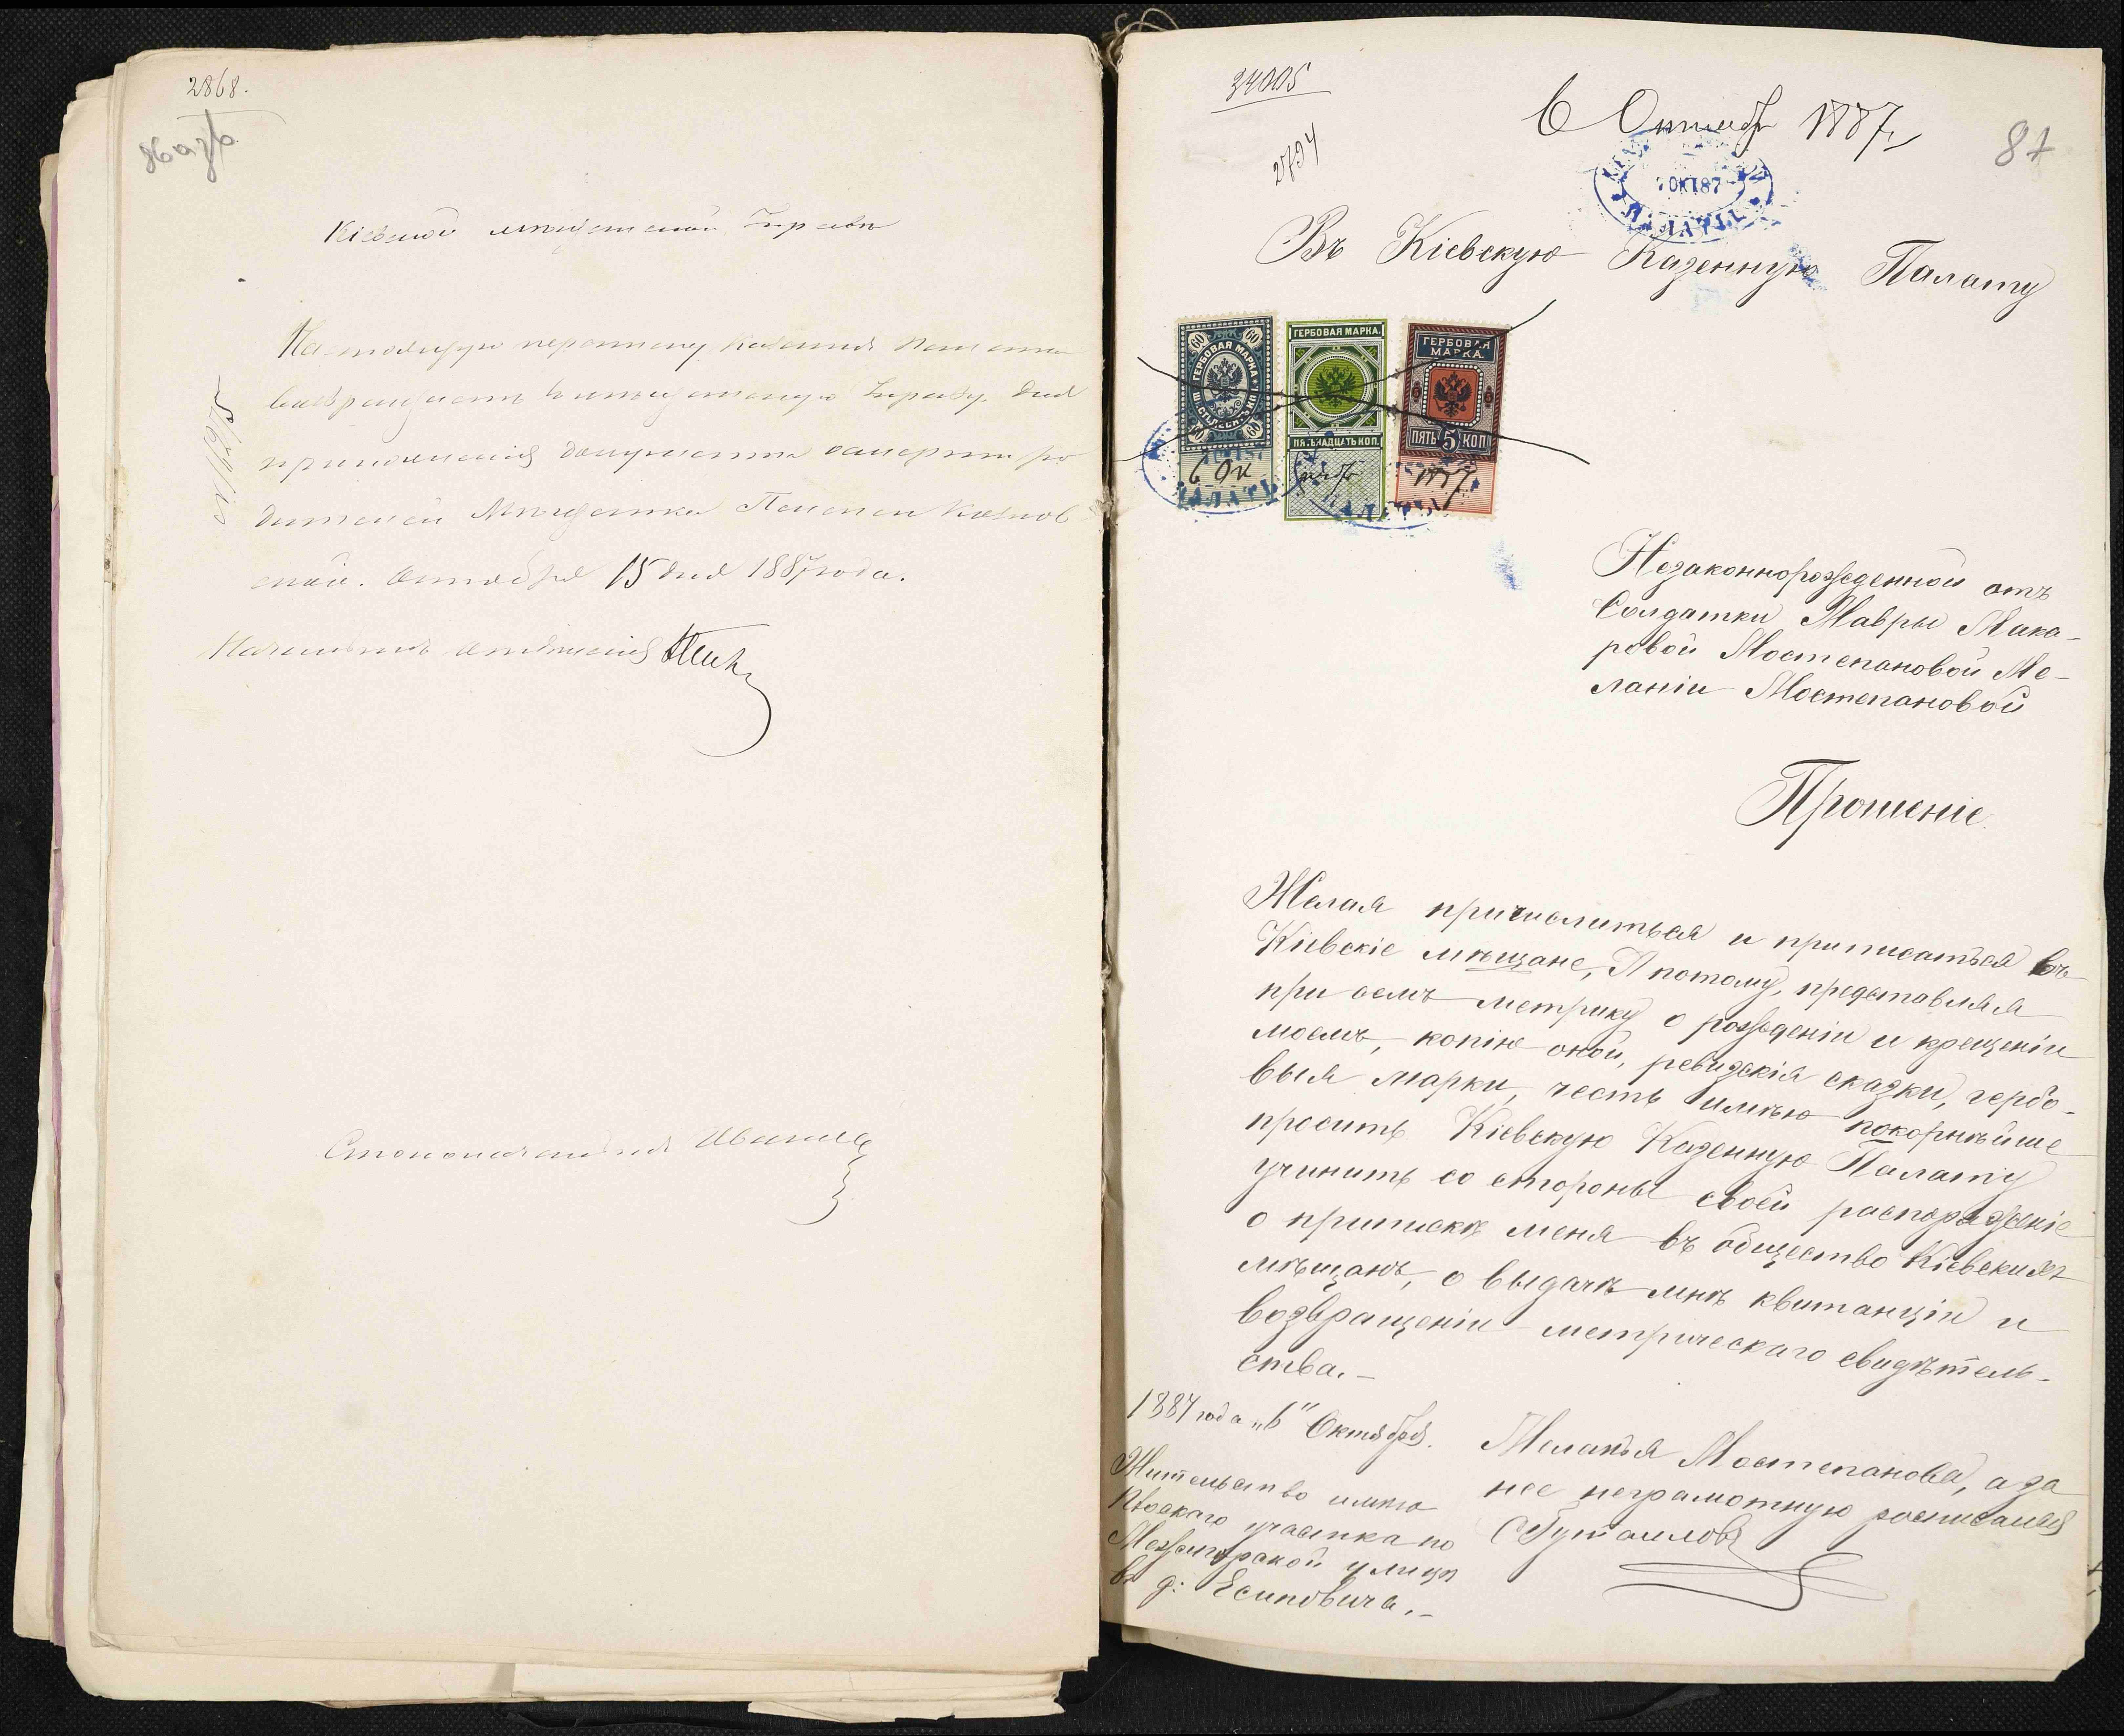 2868.
86 аз/в
Кіевской мѣщанской Управѣ
Настоящую переписку Казенная Палата
возвращаетъ въ мѣщанскую Управу для
приложенія документа о смерти ро
дителей Мѣщанки Козлов
ской. Октября 15 дня 1887 года.
Начальникъ отдѣленія
Столоначальникъ
34005
2794
6 Октябр 1887 г.
87
7 ОКТ 87
ПАЛАТЫ
Въ Кіевскую Казенную Палату
60 60
ГЕРБОВАЯ МАРКА
ШЕСТЬДЕСЯТЪ КОП.
60 60
ГЕРБОВАЯ МАРКА.
ПЯТЬНАДЦАТЬ КОП.
ГЕРБОВАЯ
МАРКА.
ПЯТЬ 5 КОП
6 Ок тябр 1887
Незаконнорожденной отъ
Солдатки Мавры Мака-
ровой Мостепановой Ме-
ланіи Мостепановой
Прошеніе.
Желая причислиться и приписаться въ
Кіевскіе мѣщане, А потому, представляя
при семъ метрику о рожденіи и крещеніи
моемъ, копію оной, ревизскія сказки, гербо-
выя марки, честь имѣю покорнѣйше
просить Кіевскую Казенную Палату
учинить со стороны своей распоряженіе
о припискѣ меня въ общество Кіевскихъ
мѣщанъ, о выдачѣ мнѣ квитанціи и
возвращеніи метрическаго свидѣтель-
ства.-
1887 года „6" Октября.
Меланья Мостепанова, а за
нее неграмотную росписался
Жительство имѣю
участка по
Межигорской улицѣ
въ д: Есиповича.-